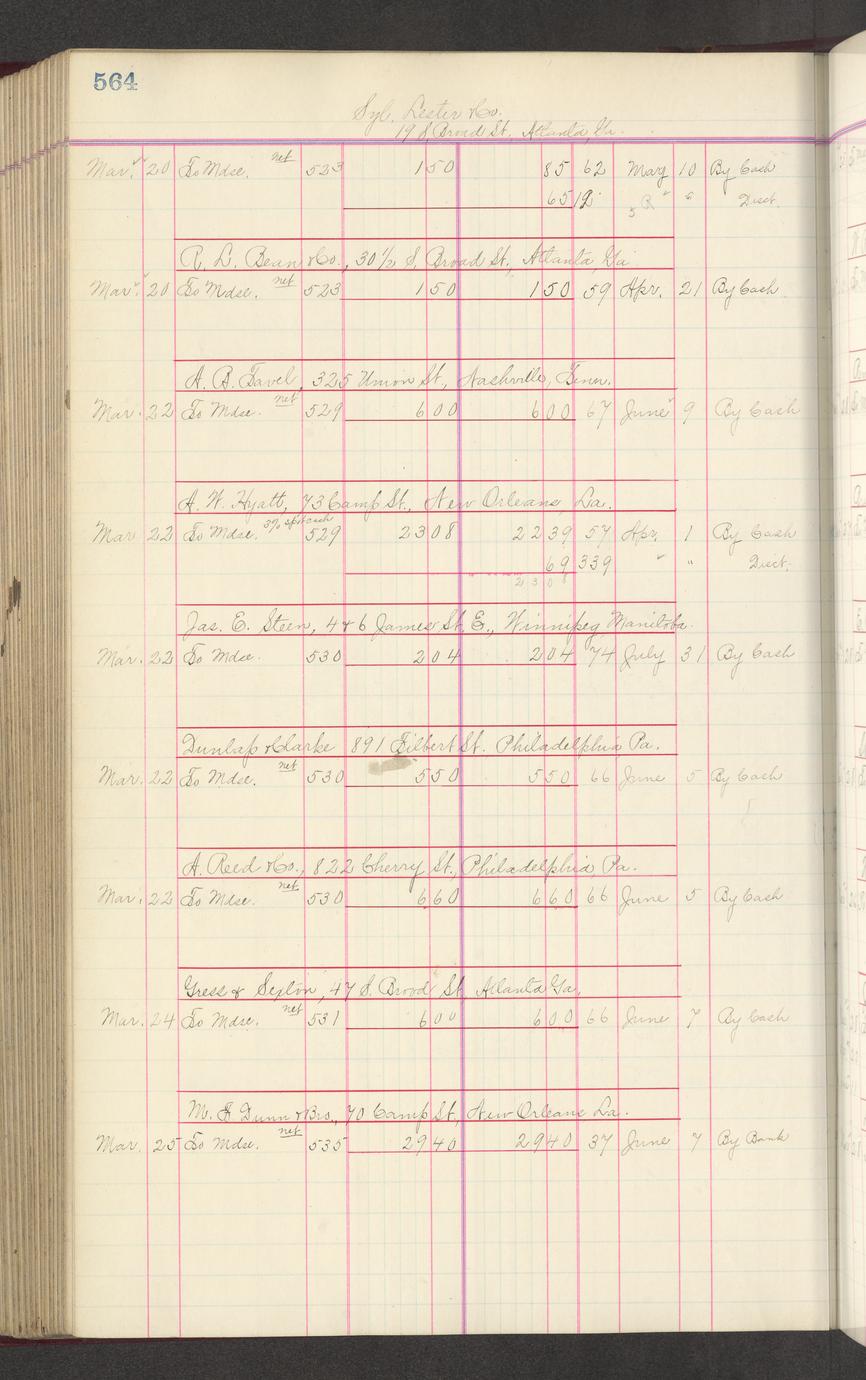 564
Syl. Lester & Co.
19 S. Broad St., Atlanta, Ga.
Mar. 20 To Mdse. net 523 1 50 85 62 May 10 By Cash
65 12 " " Disct.
R. L. Bean & Co., 30 1/2 S. Broad St., Atlanta, Ga.
Mar. 20 To Mdse. net 523 1 50 1 50 59 Apr. 21 By Cash
A. B. Tavel, 325 Union St., Nashville, Tenn.
Mar. 22 To Mdse. net 529 6 00 6 00 67 June 9 By Cash
A. W. Hyatt, 73 Camp St., New Orleans, La.
Mar 22 To Mdse. 3% spot cash 529 23 08 22 39 57 Apr. 1 By Cash
69 339 " " Disct.
23 08
Jas. E. Steen, 4 & 6 James St. E., Winnipeg Manitoba.
Mar. 22 To Mdse. 530 2 04 2 04 74 July 31 By Cash
Dunlap & Clarke 891 Filbert St. Philadelphia Pa.
Mar. 22 To Mdse. net 530 5 50 5 50 66 June 5 By Cash
A. Reed & Co., 822 Cherry St., Philadelphia, Pa.
Mar. 22 To Mdse. net 530 6 60 6 60 66 June 5 By Cash
Gress & Sexton, 47 S. Broad St. Atlanta Ga.
Mar. 24 To Mdse. net 531 6 00 6 00 66 June 7 By Cash
M. F. Dunn & Bro., 70 Camp St., New Orleans La.
Mar. 25 To Mdse. net 535 29 40 29 40 37 June 7 By Bank